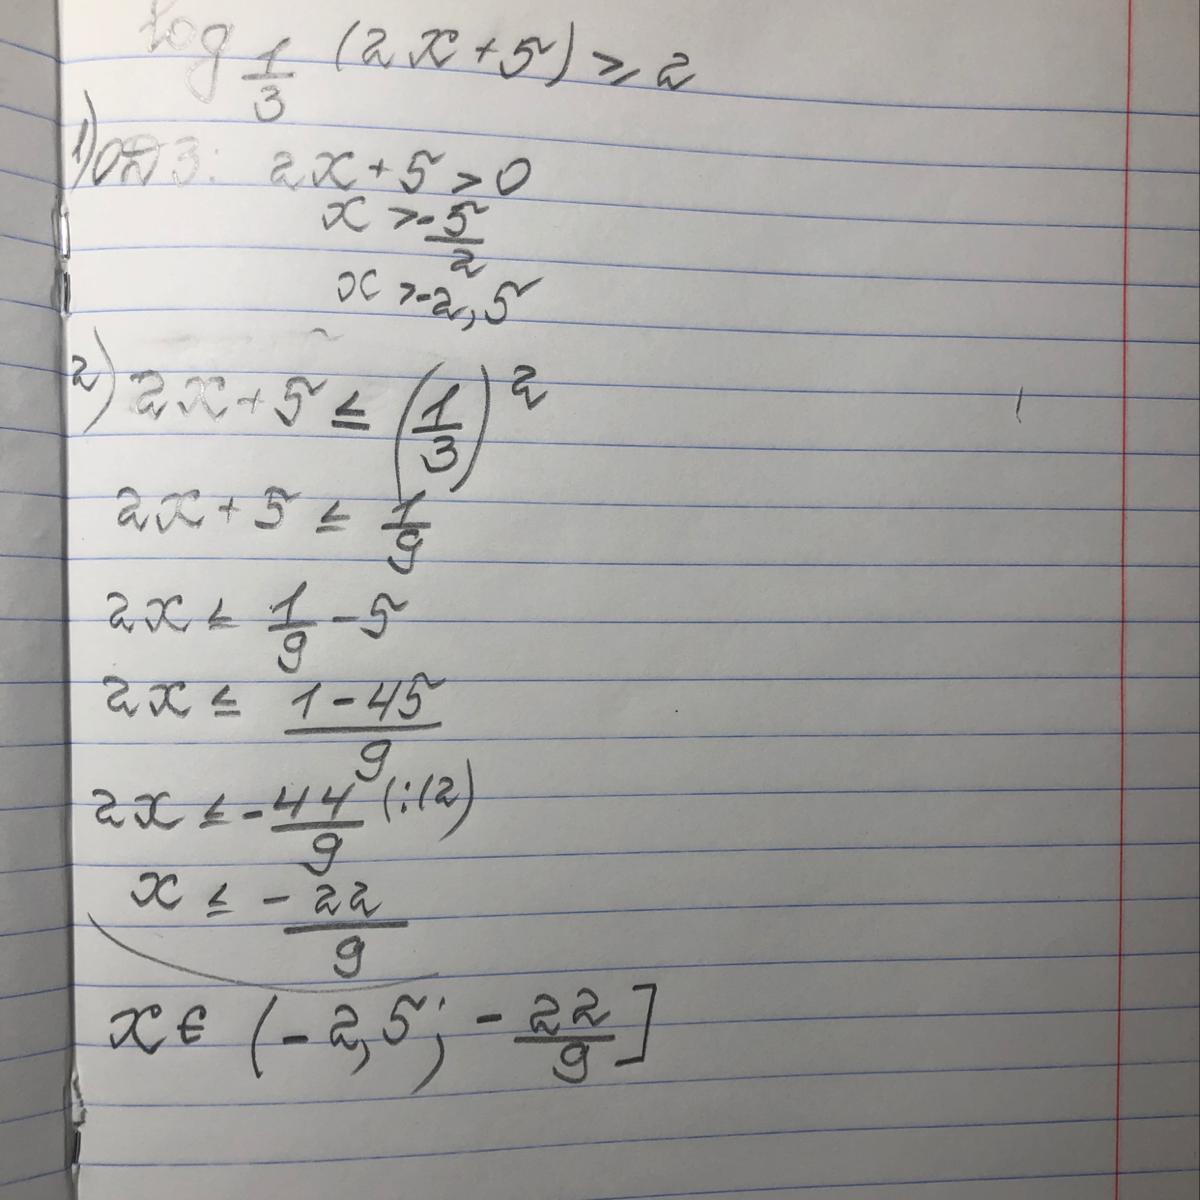 log 1/3 (2x+5) ≥ 2
1) ОДЗ: 2x+5 > 0
x > -5/2
x > -2,5
2) 2x+5 ≤ (1/3)^2
2x+5 ≤ 1/9
2x ≤ 1/9 - 5
2x ≤ (1-45)/9
2x ≤ -44/9 (:(2)
x ≤ -22/9
x ∈ (-2,5; -22/9]